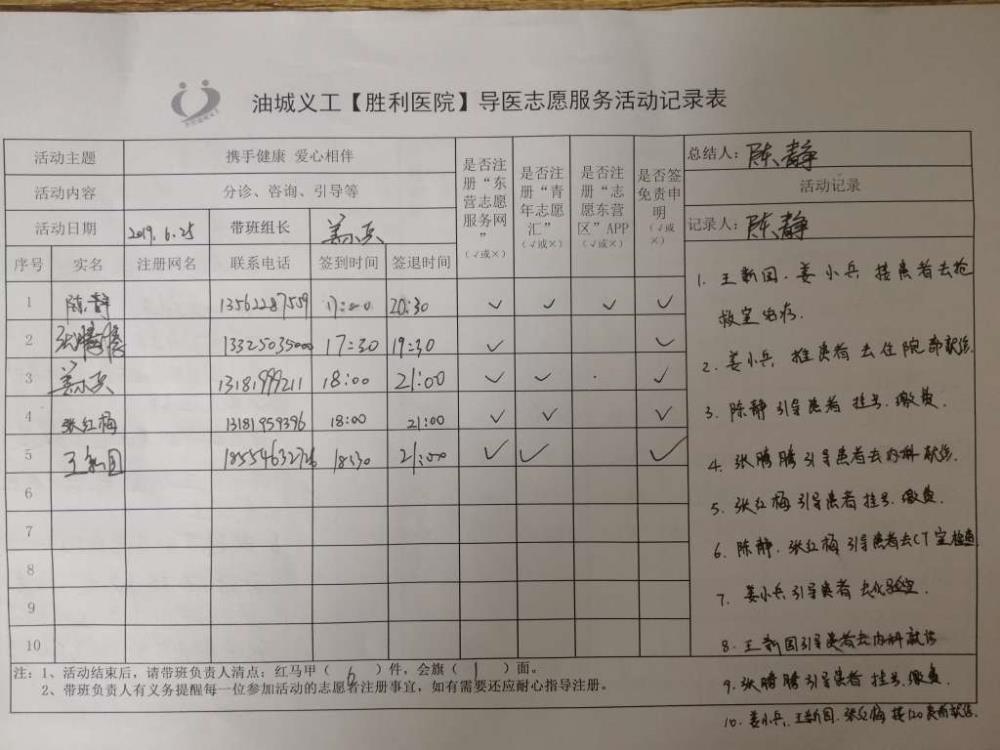 油城义工【胜利医院】导医志愿服务活动记录表
活动主题 携手健康 爱心相伴
活动内容 分诊、咨询、引导等
活动日期 2019.6.25 带班组长 姜小兵
序号 实名 注册网名 联系电话 签到时间 签退时间 是否注册“东营志愿服务网”（√或×） 是否注册“青年志愿汇”（√或×） 是否注册“志愿东营区”APP（√或×） 是否签免责申明（√或×）
1 陈静 13562287559 17:00 20:30 ✓ ✓ ✓ ✓
2 张腾腾 13325035000 17:30 19:30 ✓ ✓
3 姜小兵 13181999211 18:00 21:00 ✓ ✓ ✓
4 张红梅 13181959396 18:00 21:00 ✓ ✓ ✓
5 王新国 18:30 21:00 ✓ ✓ ✓
6
7
8
9
10
总结人：陈静
活动记录
记录人：陈静
1. 王新国. 姜小兵 接患者去抢
救室治疗.
2. 姜小兵 推患者去住院部就诊.
3. 陈静引导患者 挂号. 缴费.
4. 张腾腾引导患者去内科就诊.
5. 张红梅引导患者挂号. 缴费.
6. 陈静. 张红梅引导患者去CT室检查
7. 姜小兵引导患者去化验室.
8. 王新国引导患者去内科就诊
9. 张腾腾引导患者挂号. 缴费.
10. 姜小兵. 王新国. 张红梅 接120患者就诊.
注：1、活动结束后，请带班负责人清点：红马甲（ 6 ）件，会旗（ 1 ）面。
2、带班负责人有义务提醒每一位参加活动的志愿者注册事宜，如有需要还应耐心指导注册。